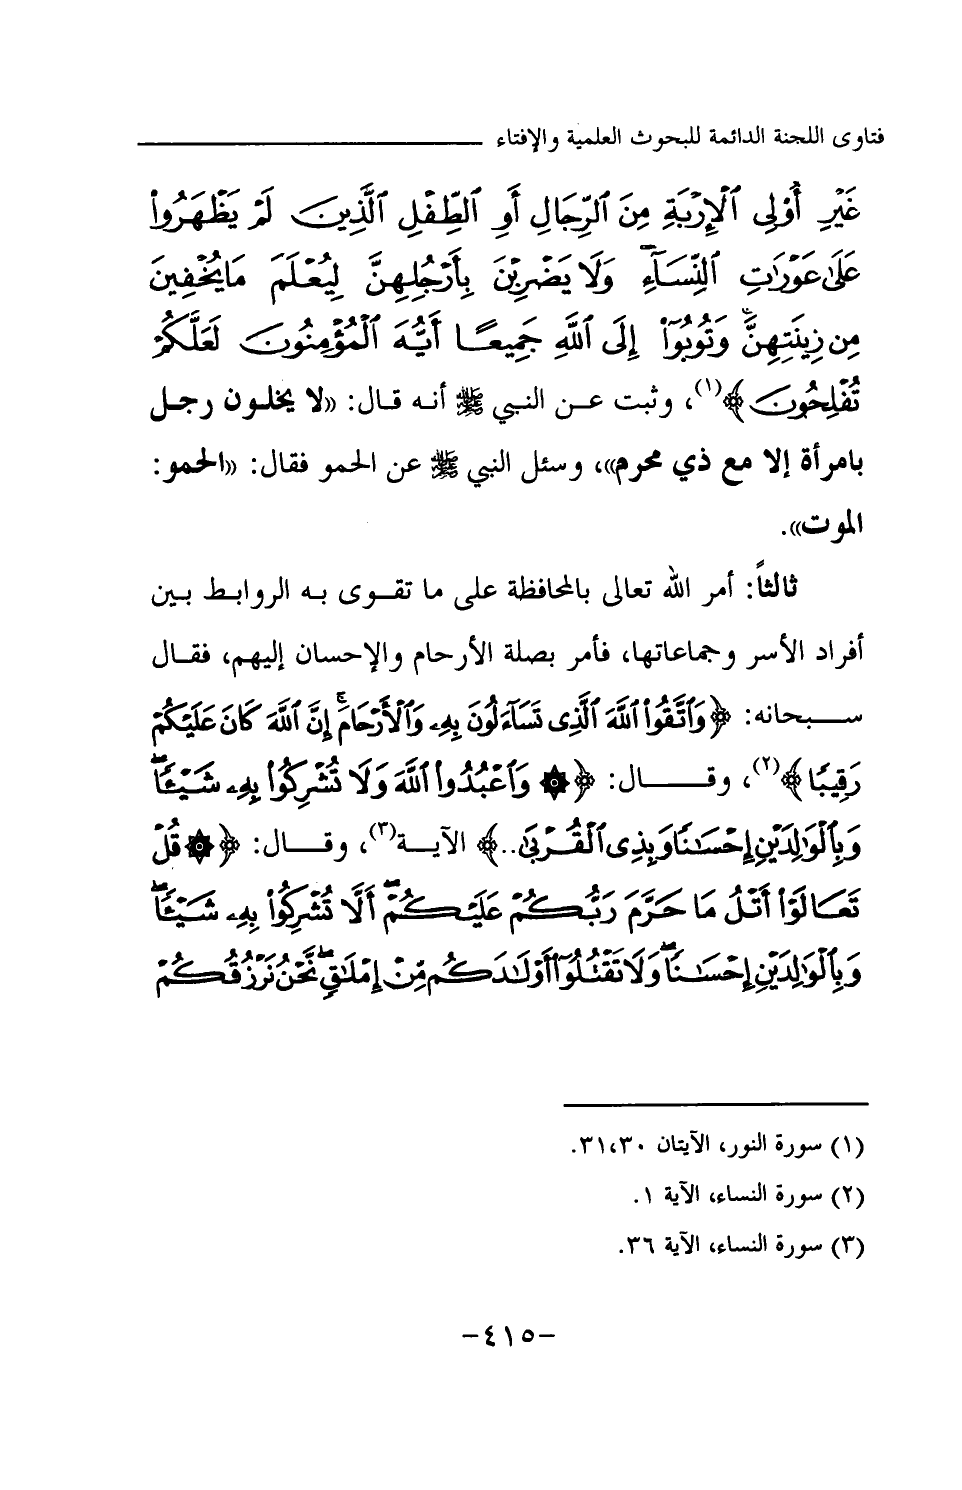 فتاوى اللجنة الدائمة للبحوث العلمية والإفتاء
غَيْرِ أُوْلِي ٱلْإِرْبَةِ مِنَ ٱلرِّجَالِ أَوِ ٱلطِّفْلِ ٱلَّذِينَ لَمْ يَظْهَرُواْ
عَلَىٰ عَوْرَٰتِ ٱلنِّسَآءِ وَلَا يَضْرِبْنَ بِأَرْجُلِهِنَّ لِيُعْلَمَ مَا يُخْفِينَ
مِن زِينَتِهِنَّ وَتُوبُوٓاْ إِلَى ٱللَّهِ جَمِيعًا أَيُّهَ ٱلْمُؤْمِنُونَ لَعَلَّكُمْ
تُفْلِحُونَ﴾(١)، وثبت عن النبي ﷺ أنه قال: «لا يخلون رجل
بامرأة إلا مع ذي محرم»، وسئل النبي ﷺ عن الحمو فقال: «الحمو:
الموت».
ثالثاً: أمر الله تعالى بالمحافظة على ما تقوى به الروابط بين
أفراد الأسر وجماعاتها، فأمر بصلة الأرحام والإحسان إليهم، فقال
سبحانه: ﴿وَٱتَّقُواْ ٱللَّهَ ٱلَّذِى تَسَآءَلُونَ بِهِۦ وَٱلْأَرْحَامَ ۚ إِنَّ ٱللَّهَ كَانَ عَلَيْكُمْ
رَقِيبًا﴾(٢)، وقال: ﴿۞ وَٱعْبُدُواْ ٱللَّهَ وَلَا تُشْرِكُواْ بِهِۦ شَيْـًٔا ۖ
وَبِٱلْوَٰلِدَيْنِ إِحْسَـٰنًا وَبِذِى ٱلْقُرْبَىٰ..﴾ الآية(٣)، وقال: ﴿۞ قُلْ
تَعَالَوْاْ أَتْلُ مَا حَرَّمَ رَبُّكُمْ عَلَيْكُمْ ۖ أَلَّا تُشْرِكُواْ بِهِۦ شَيْـًٔا ۖ
وَبِٱلْوَٰلِدَيْنِ إِحْسَـٰنًا ۖ وَلَا تَقْتُلُوٓاْ أَوْلَـٰدَكُم مِّنْ إِمْلَـٰقٍ ۖ نَّحْنُ نَرْزُقُكُمْ
(١) سورة النور، الآيتان ٣١،٣٠.
(٢) سورة النساء، الآية ١.
(٣) سورة النساء، الآية ٣٦.
-٤١٥-